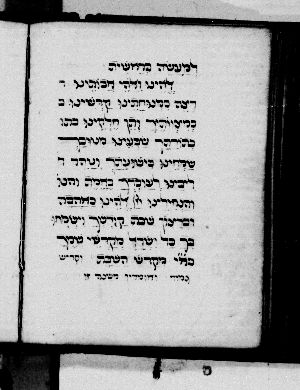 למעשה בראשית
אלהינו ואלהי אבותינו ר
רצה במנוחתינו קדשינו ב
במצותיך ותן חלקינו בתו
בתורתך שבעינו מטובך
שמחינו בישועתך וטהר ל
ליבינו לעובדך באמת והנ
והנחילינו אלהינו באהבה
וברצון שבת קדשך וישמחו
בך כל ישראל מקדשי שמך
מקדש השבת